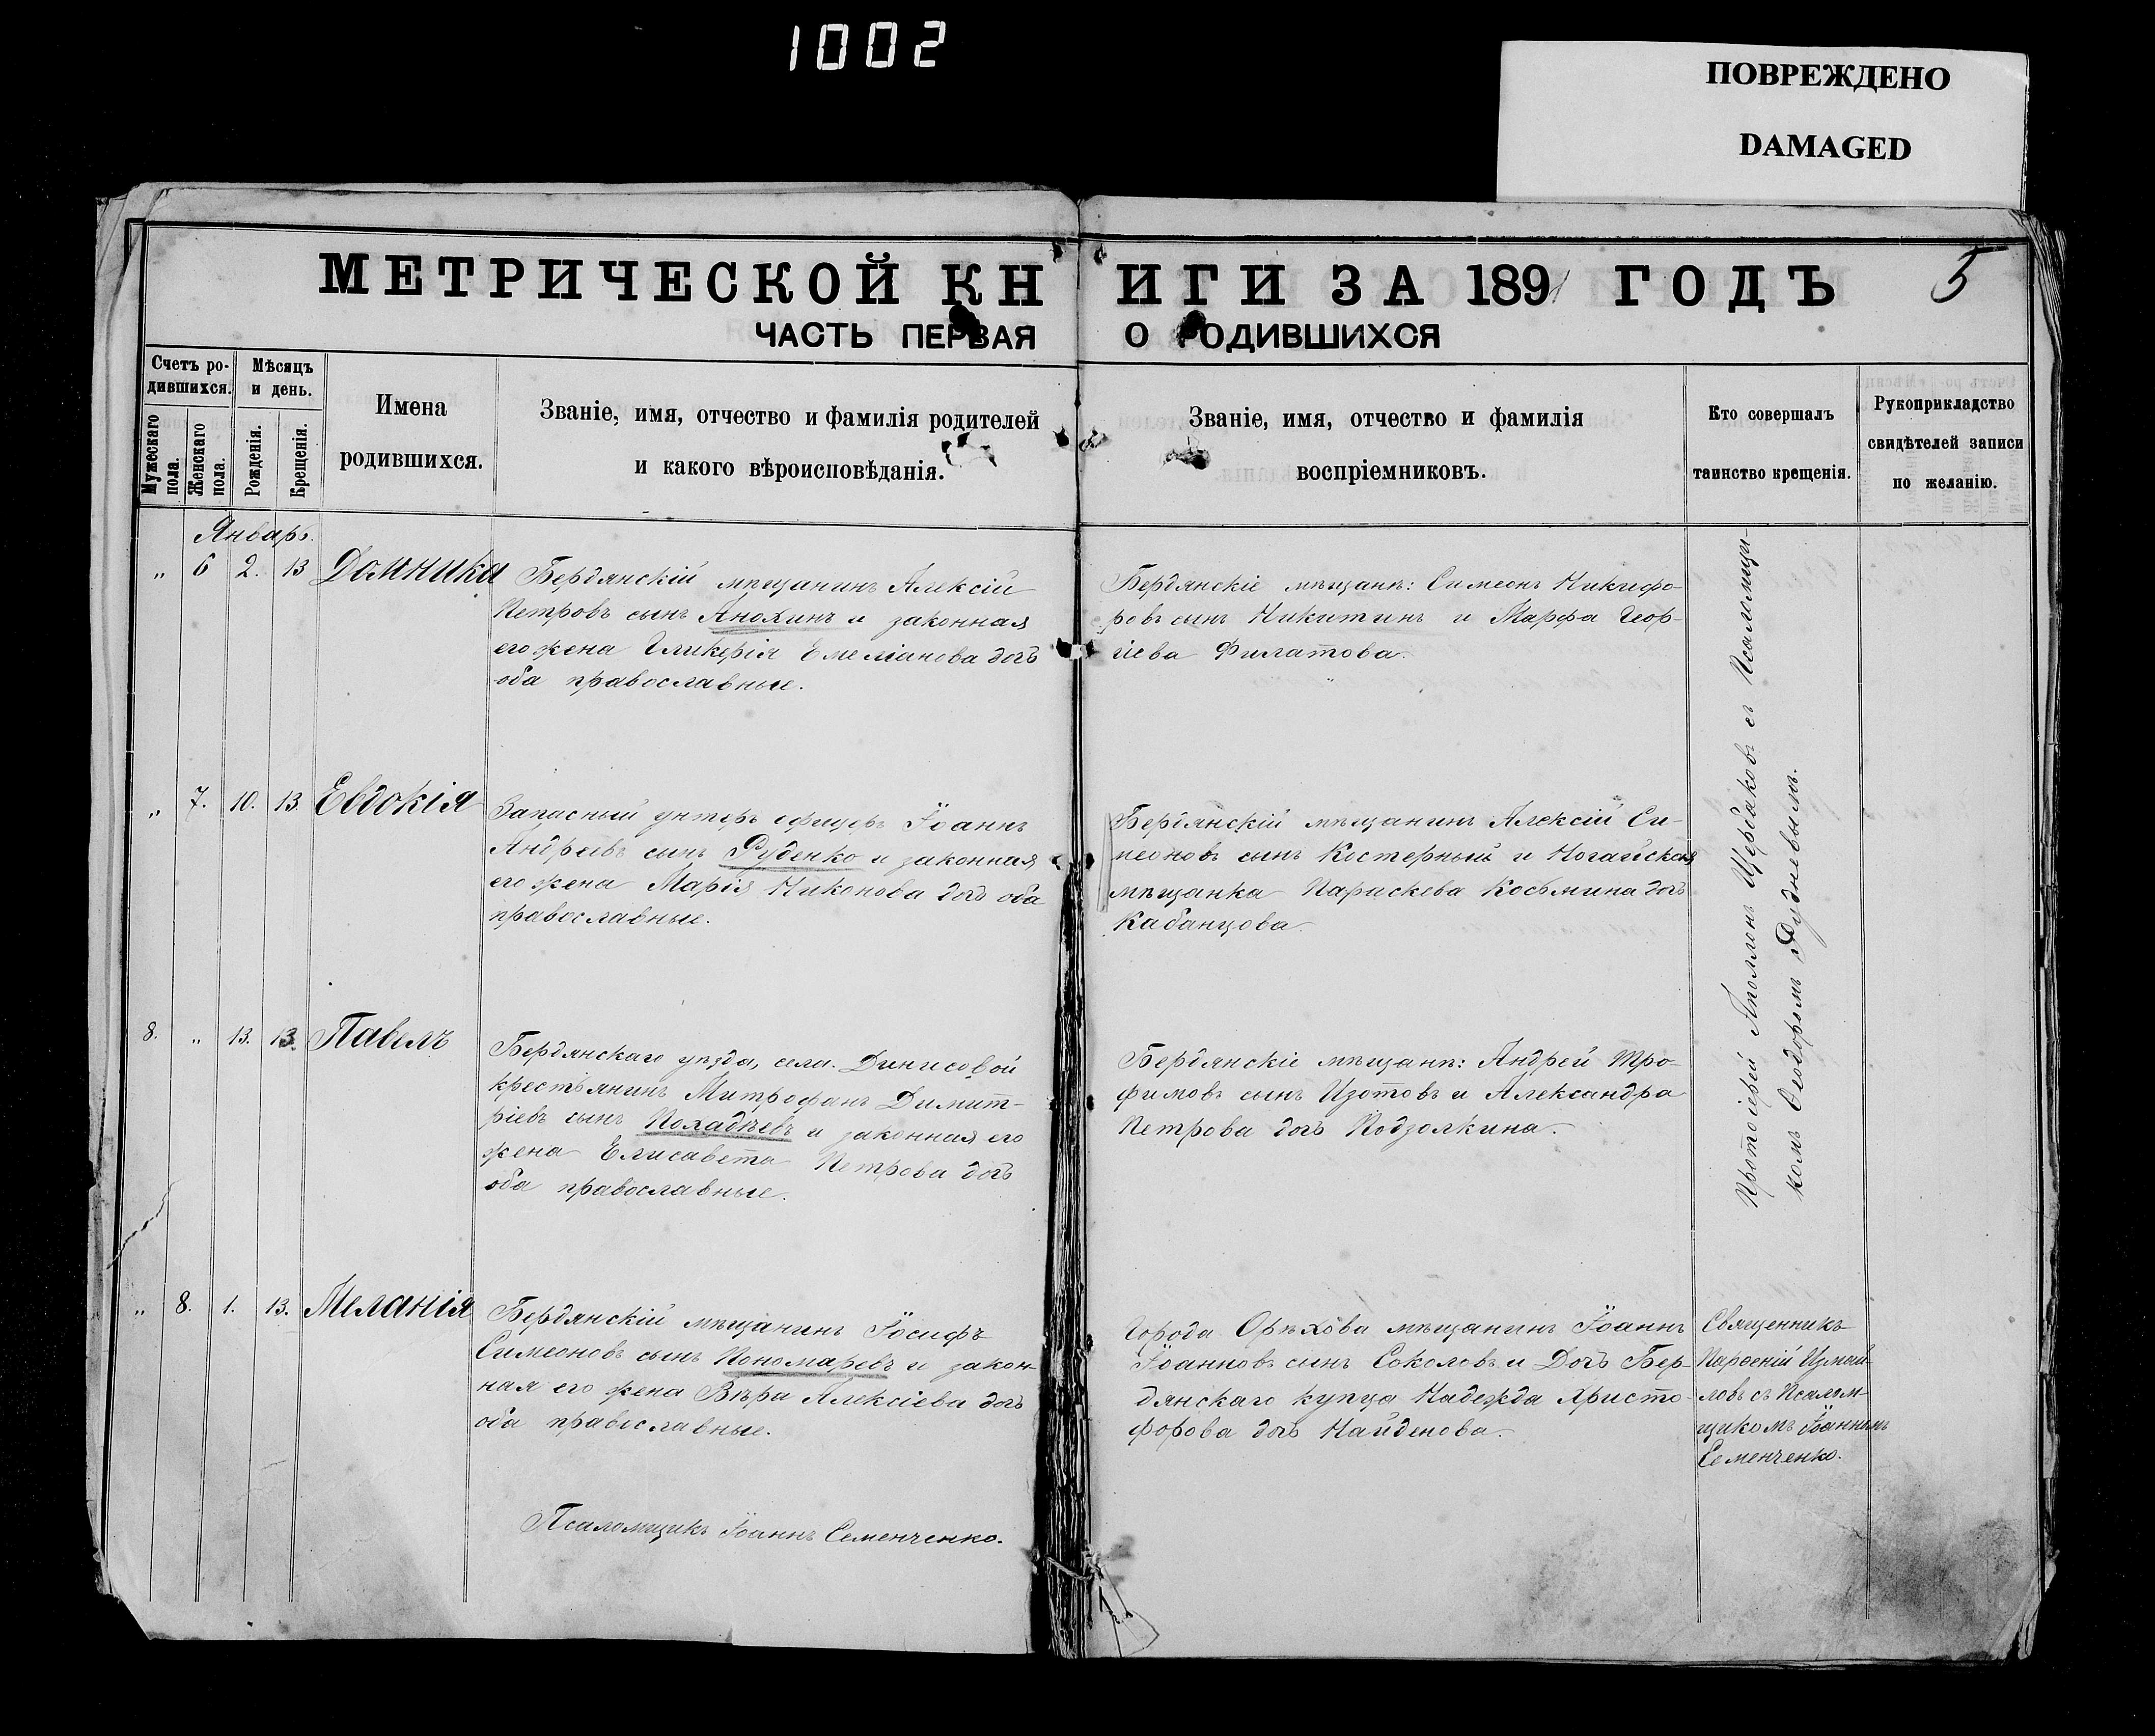 1002
ПОВРЕЖДЕНО
DAMAGED
МЕТРИЧЕСКОЙ КНИГИ ЗА 1891 ГОДЪ
5
ЧАСТЬ ПЕРВАЯ О РОДИВШИХСЯ
Счетъ ро-
дившихся.
Мужескаго
пола.
Женскаго
пола.
Мѣсяцъ
и день.
Рожденія.
Крещенія.
Имена
родившихся.
Званіе, имя, отчество и фамилія родителей
и какого вѣроисповѣданія.
Званіе, имя, отчество и фамилія
воспріемниковъ.
Кто совершалъ
таинство крещенія.
Рукоприкладство
свидѣтелей записи
по желанію.
Январь.
„ 6 2. 13 Домника
Бердянскій мѣщанинъ Алексій
Петровъ сынъ Анохинъ и законная
его жена Гликерія Емеліанова дочь
оба православные.
Бердянскіе мѣщане: Симеонъ Никифо-
ровъ сынъ Никитинъ и Марфа Геор-
гіева Филатова.
„ 7. 10. 13. Евдокія
Запасный унтеръ офицеръ Іоаннъ
Андреевъ сынъ Руденко и законная
его жена Марія Никонова дочь оба
православные.
Бердянскій мѣщанинъ Алексій Си-
меоновъ сынъ Костерный и Ногайская
мѣщанка Параскева Косьмина дочь
Кабанцова.
8. „ 13. 13. Павелъ
Бердянскаго уѣзда, села Динисовой
крестьянинъ Митрофанъ Димит-
ріевъ сынъ Поладѣевъ и законная его
жена Елисавета Петрова дочь
оба православные.
Бердянскіе мѣщане: Андрей Тро-
фимовъ сынъ Изотовъ и Александра
Петрова дочь Подзолкина.
Протоіерей Аполлонъ Щербаковъ съ Псаломщи-
комъ Ѳеодоромъ Рудневымъ.
„ 8. 1. 13. Меланія
Бердянскій мѣщанинъ Іосифъ
Симеоновъ сынъ Пономаревъ и закон-
ная его жена Вѣра Алексіева дочь
оба православные.
Города Орѣхова мѣщанинъ Іоаннъ
Іоанновъ сынъ Соколовъ и Дочь Бер-
дянскаго купца Надежда Христо-
форова дочь Найденова.
Священникъ
Парѳеній Измай-
ловъ съ Псалом-
щикомъ Іоанномъ
Семенченко.
Псаломщикъ Іоаннъ Семенченко.